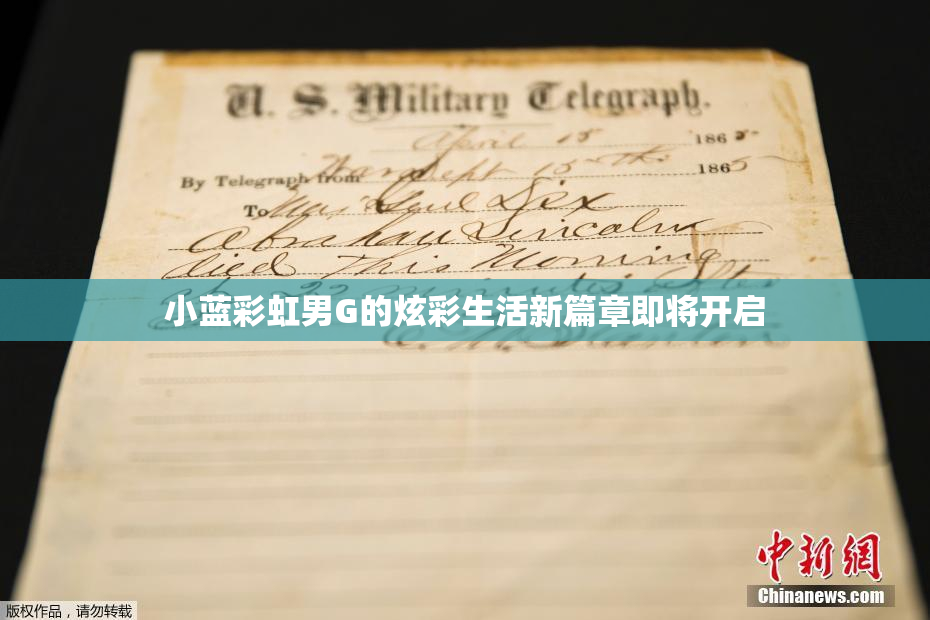 U. S. Military Telegraph.
April 15 1865
By Telegraph from War Dept 15th 1865
To Maj Genl Dix
Abraham Lincoln
died This Morning
at 22 minutes after
小蓝彩虹男G的炫彩生活新篇章即将开启
中新网
Chinanews.com
版权作品，请勿转载